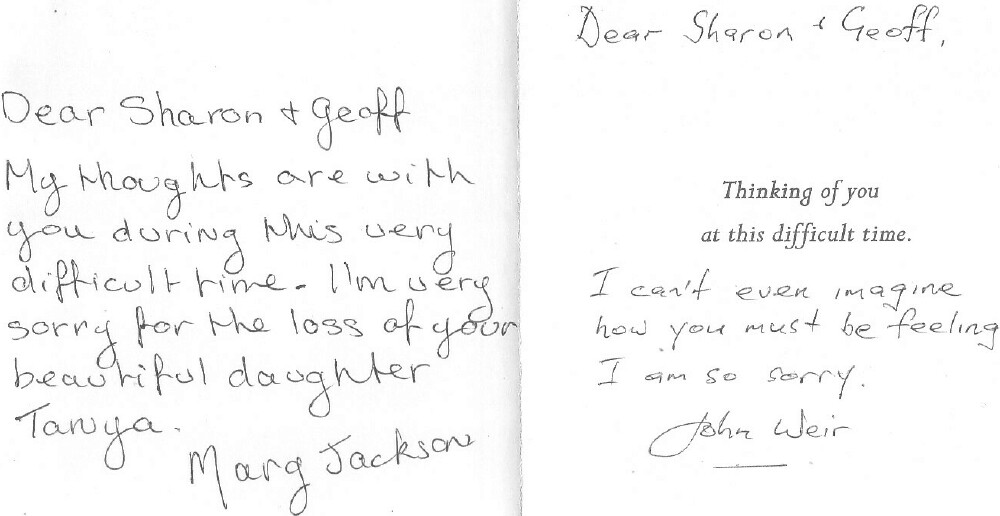 Dear Sharon + Geoff
My thoughts are with
you during this very
difficult time. I'm very
sorry for the loss of your
beautiful daughter
Tanya.
Marg Jackson
Dear Sharon + Geoff,
Thinking of you
at this difficult time.
I can't even imagine
how you must be feeling
I am so sorry.
John Weir